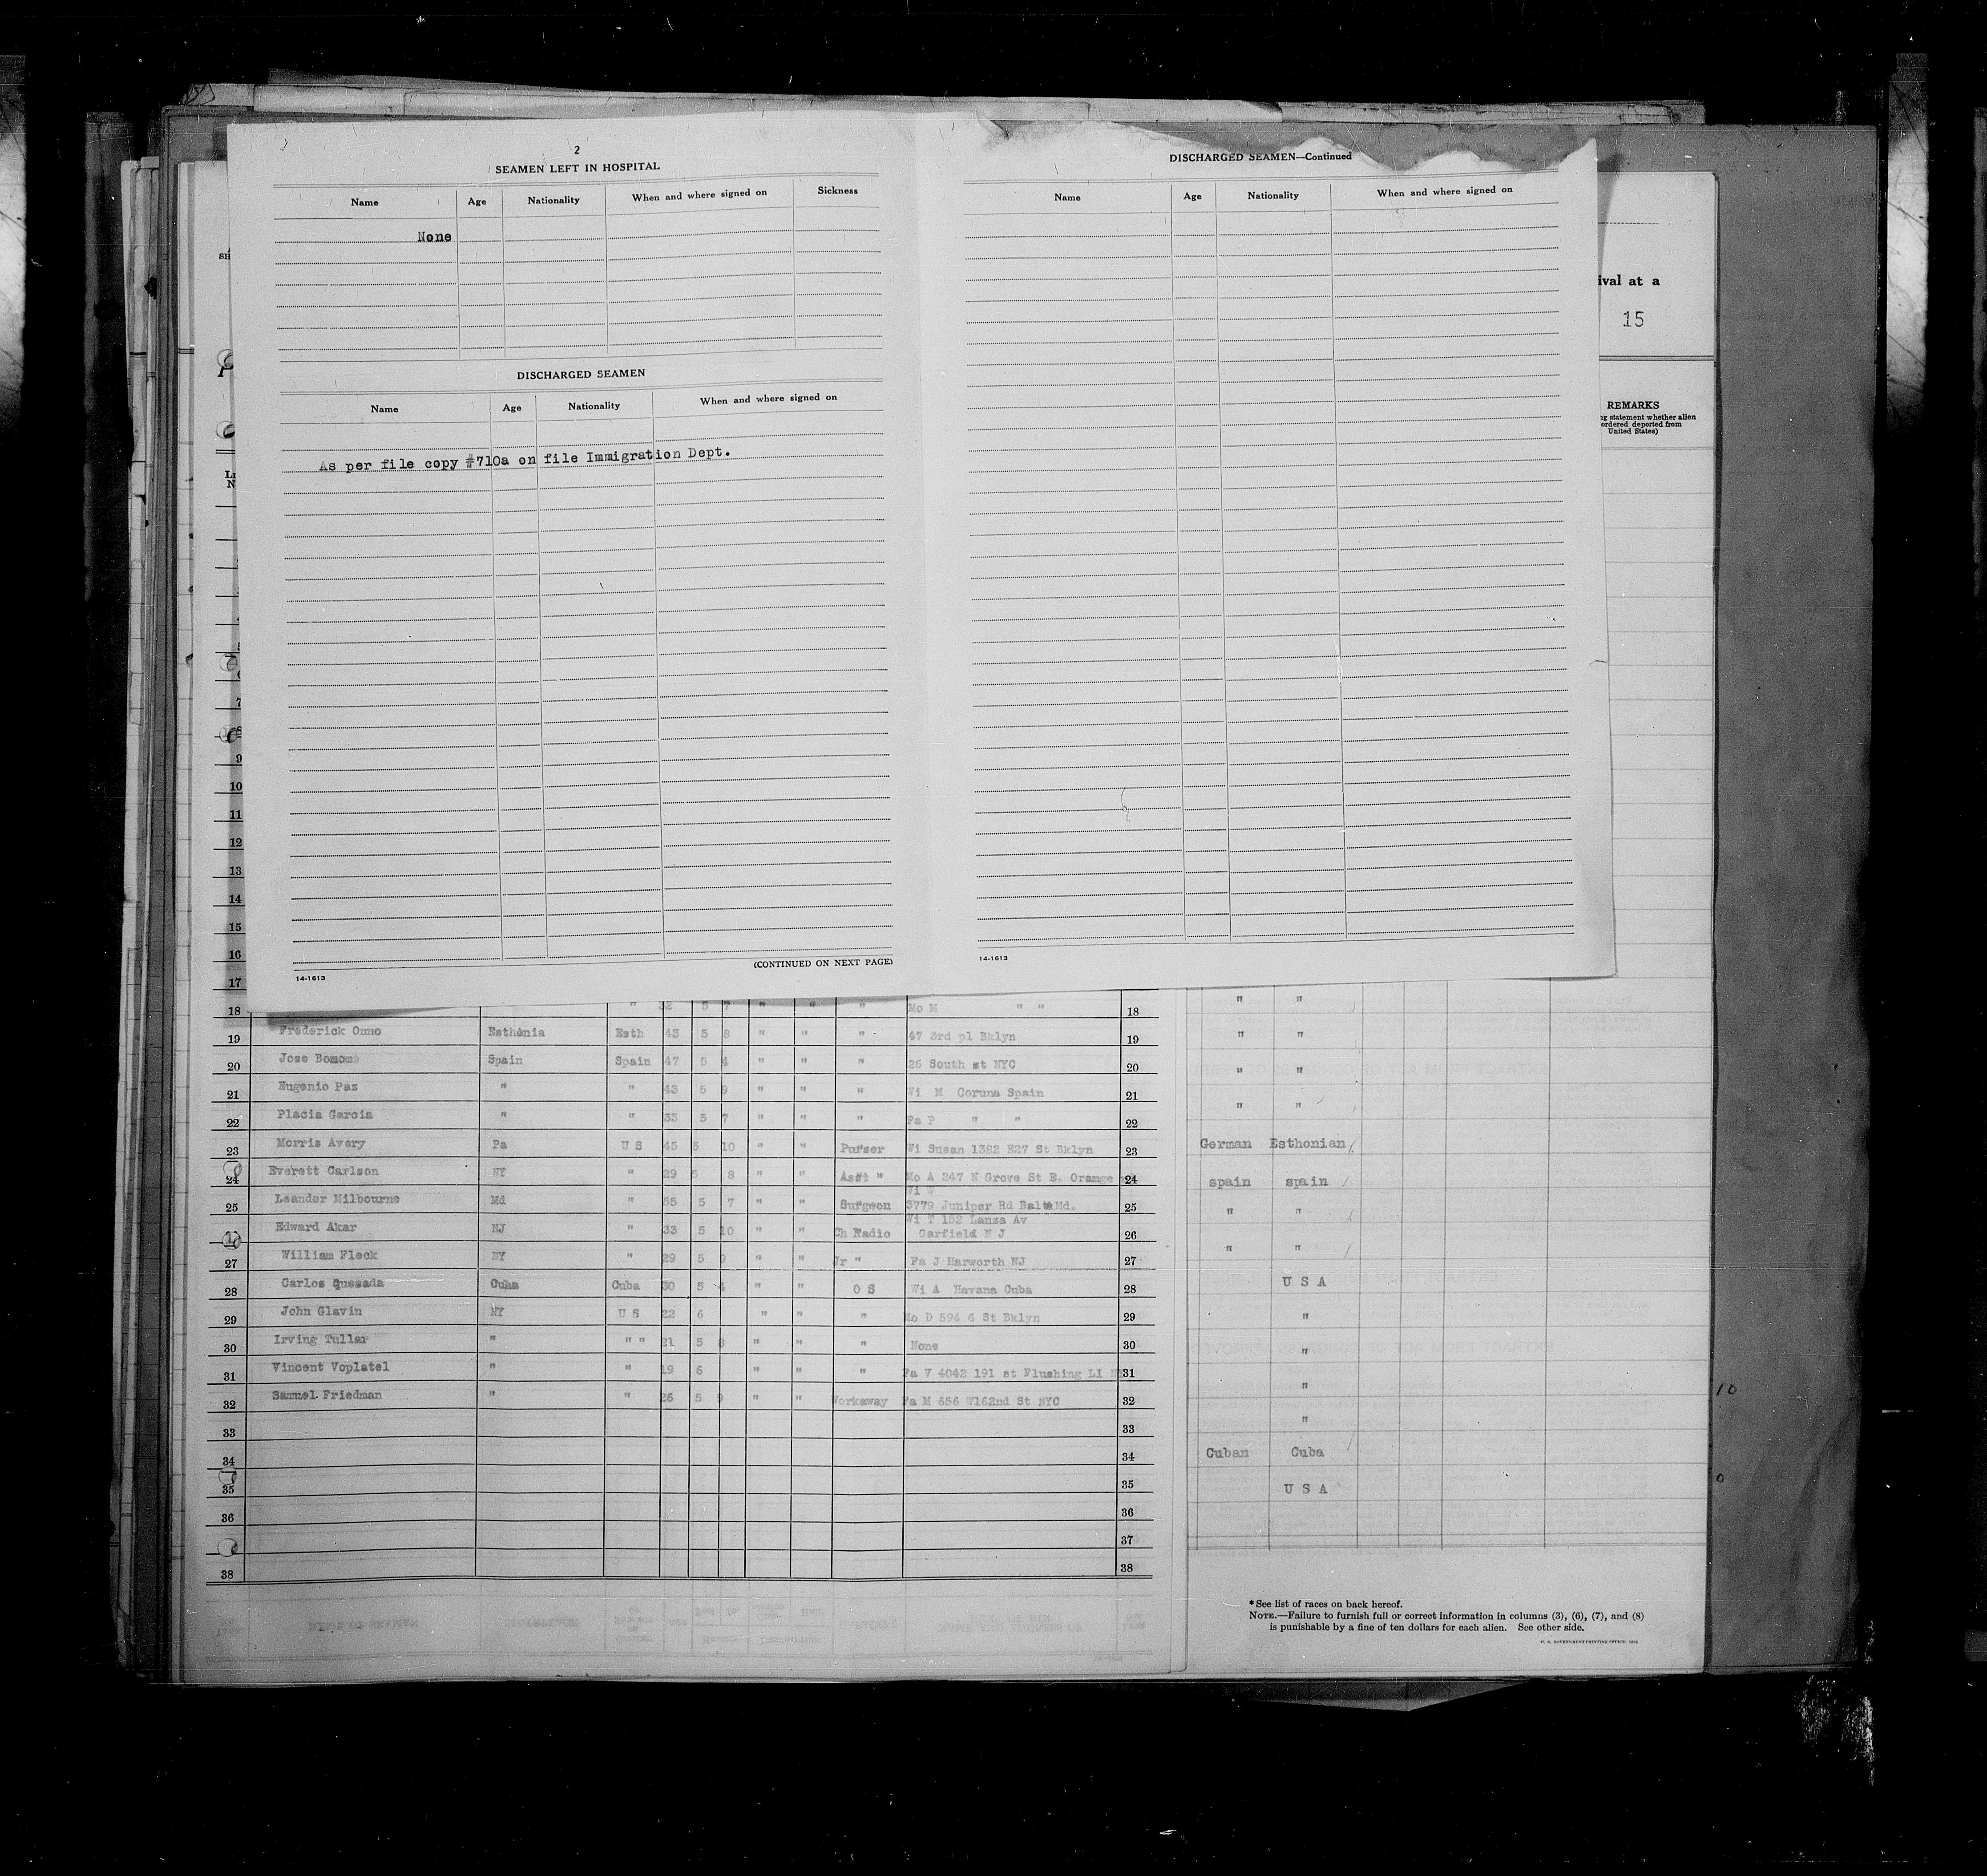 2
SEAMEN LEFT IN HOSPITAL
Name Age Nationality When and where signed on Sickness
None
DISCHARGED SEAMEN
Name Age Nationality When and where signed on
As per file copy #710a on file Immigration Dept.
(CONTINUED ON NEXT PAGE)
14-1613
DISCHARGED SEAMEN—Continued
Name Age Nationality When and where signed on
14-1613
ival at a
15
REMARKS
statement whether alien
ordered deported from
United States)
9
10
11
12
13
14
15
16
17
18 " 5 7 " " " Mo M " " 18
19 Frederick Onno Esthonia Esth 43 5 8 " " " 47 3rd pl Bklyn 19
20 Jose Spain Spain 47 5 4 " " " 25 South st NYC 20
21 Eugenio Paz " " 43 5 9 " " " Wi M Coruna Spain 21
22 Placia Garcia " " 33 5 7 " " " Fa P " " 22
23 Morris Avery Pa U S 45 5 10 " " Purser Wi Susan 1382 E27 St Bklyn 23
24 Everett Carlson NY " 29 5 8 " " Asst " Mo A 247 N Grove St E. Orange 24
25 Leander Milbourne Md " 55 5 7 " " Surgeon 3779 Juniper Rd Balto Md. 25
Edward Akar NJ " 33 5 10 " " Ch Radio Wi T 152 Lanza Av Garfield N J 26
27 William Fleck NY " 29 5 9 " " Jr " Fa J Harworth NJ 27
28 Carlos Quesada Cuba Cuba 30 5 4 " " O S Wi A Havana Cuba 28
29 John Glavin NY U S 22 6 " " " Mo D 594 6 St Bklyn 29
30 Irving Tullar " " " 21 5 8 " " " None 30
31 Vincent Voplatel " " 19 6 " " " Fa V 4042 191 st Flushing LI 31
32 Samuel Friedman " " 26 5 9 " " Workaway Fa M 656 W162nd St NYC 32
33 33
34 34
35 35
36 36
37
38 38
" "
" "
" "
" "
German Esthonian
spain spain
" "
" "
U S A
"
"
"
"
Cuban Cuba
U S A
10
*See list of races on back hereof.
NOTE.—Failure to furnish full or correct information in columns (3), (6), (7), and (8)
is punishable by a fine of ten dollars for each alien. See other side.